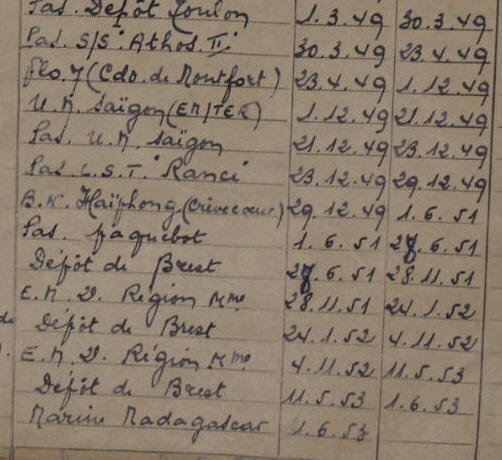 Pas. Dépôt Toulon 1.3.49 30.3.49
Pas. S/S "Athos II" 30.3.49 23.4.49
Flo. 7 (Cdo. de Montfort) 23.4.49 1.12.49
U.M. Saïgon (EM/TER) 1.12.49 21.12.49
Pas. U.M. Saïgon 21.12.49 23.12.49
Pas. L.S.T. "Rancé" 23.12.49 29.12.49
B.N. Haïphong (Crèvecoeur) 29.12.49 1.6.51
Pas. paquebot 1.6.51 28.6.51
Dépôt de Brest 28.6.51 28.11.51
E.M. 2. Région Mme 28.11.51 24.1.52
Dépôt de Brest 24.1.52 4.11.52
E.M. 2. Région Mme 4.11.52 11.5.53
Dépôt de Brest 11.5.53 1.6.53
Marine Madagascar 1.6.53